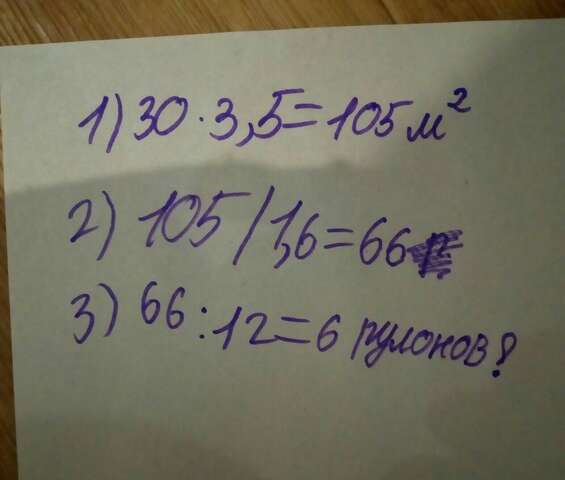 1) 30 · 3,5 = 105 м²
2) 105 / 1,6 = 66
3) 66 : 12 = 6 рулонов?